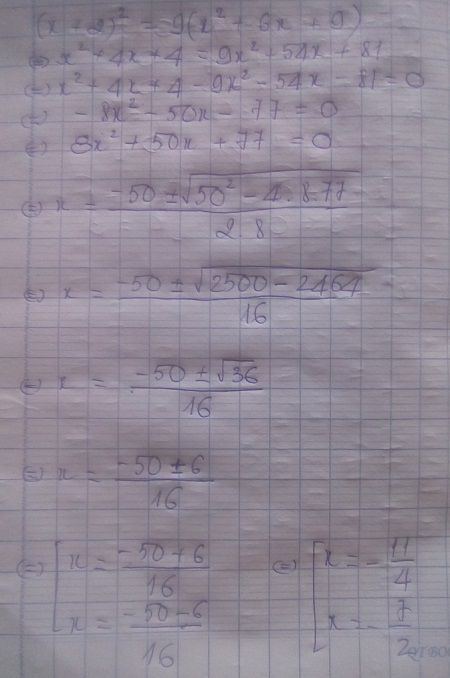 (x + 2)² = 9(x² + 6x + 9)
⇔ x² + 4x + 4 = 9x² + 54x + 81
⇔ x² + 4x + 4 - 9x² - 54x - 81 = 0
⇔ - 8x² - 50x - 77 = 0
⇔ 8x² + 50x + 77 = 0
⇔ x = (-50 ± √(50² - 4.8.77)) / (2.8)
⇔ x = (-50 ± √(2500 - 2464)) / 16
⇔ x = (-50 ± √36) / 16
⇔ x = (-50 ± 6) / 16
⇔ [ x = (-50 + 6) / 16 ⇔ [ x = - 11/4
x = (-50 - 6) / 16 x = - 7/2